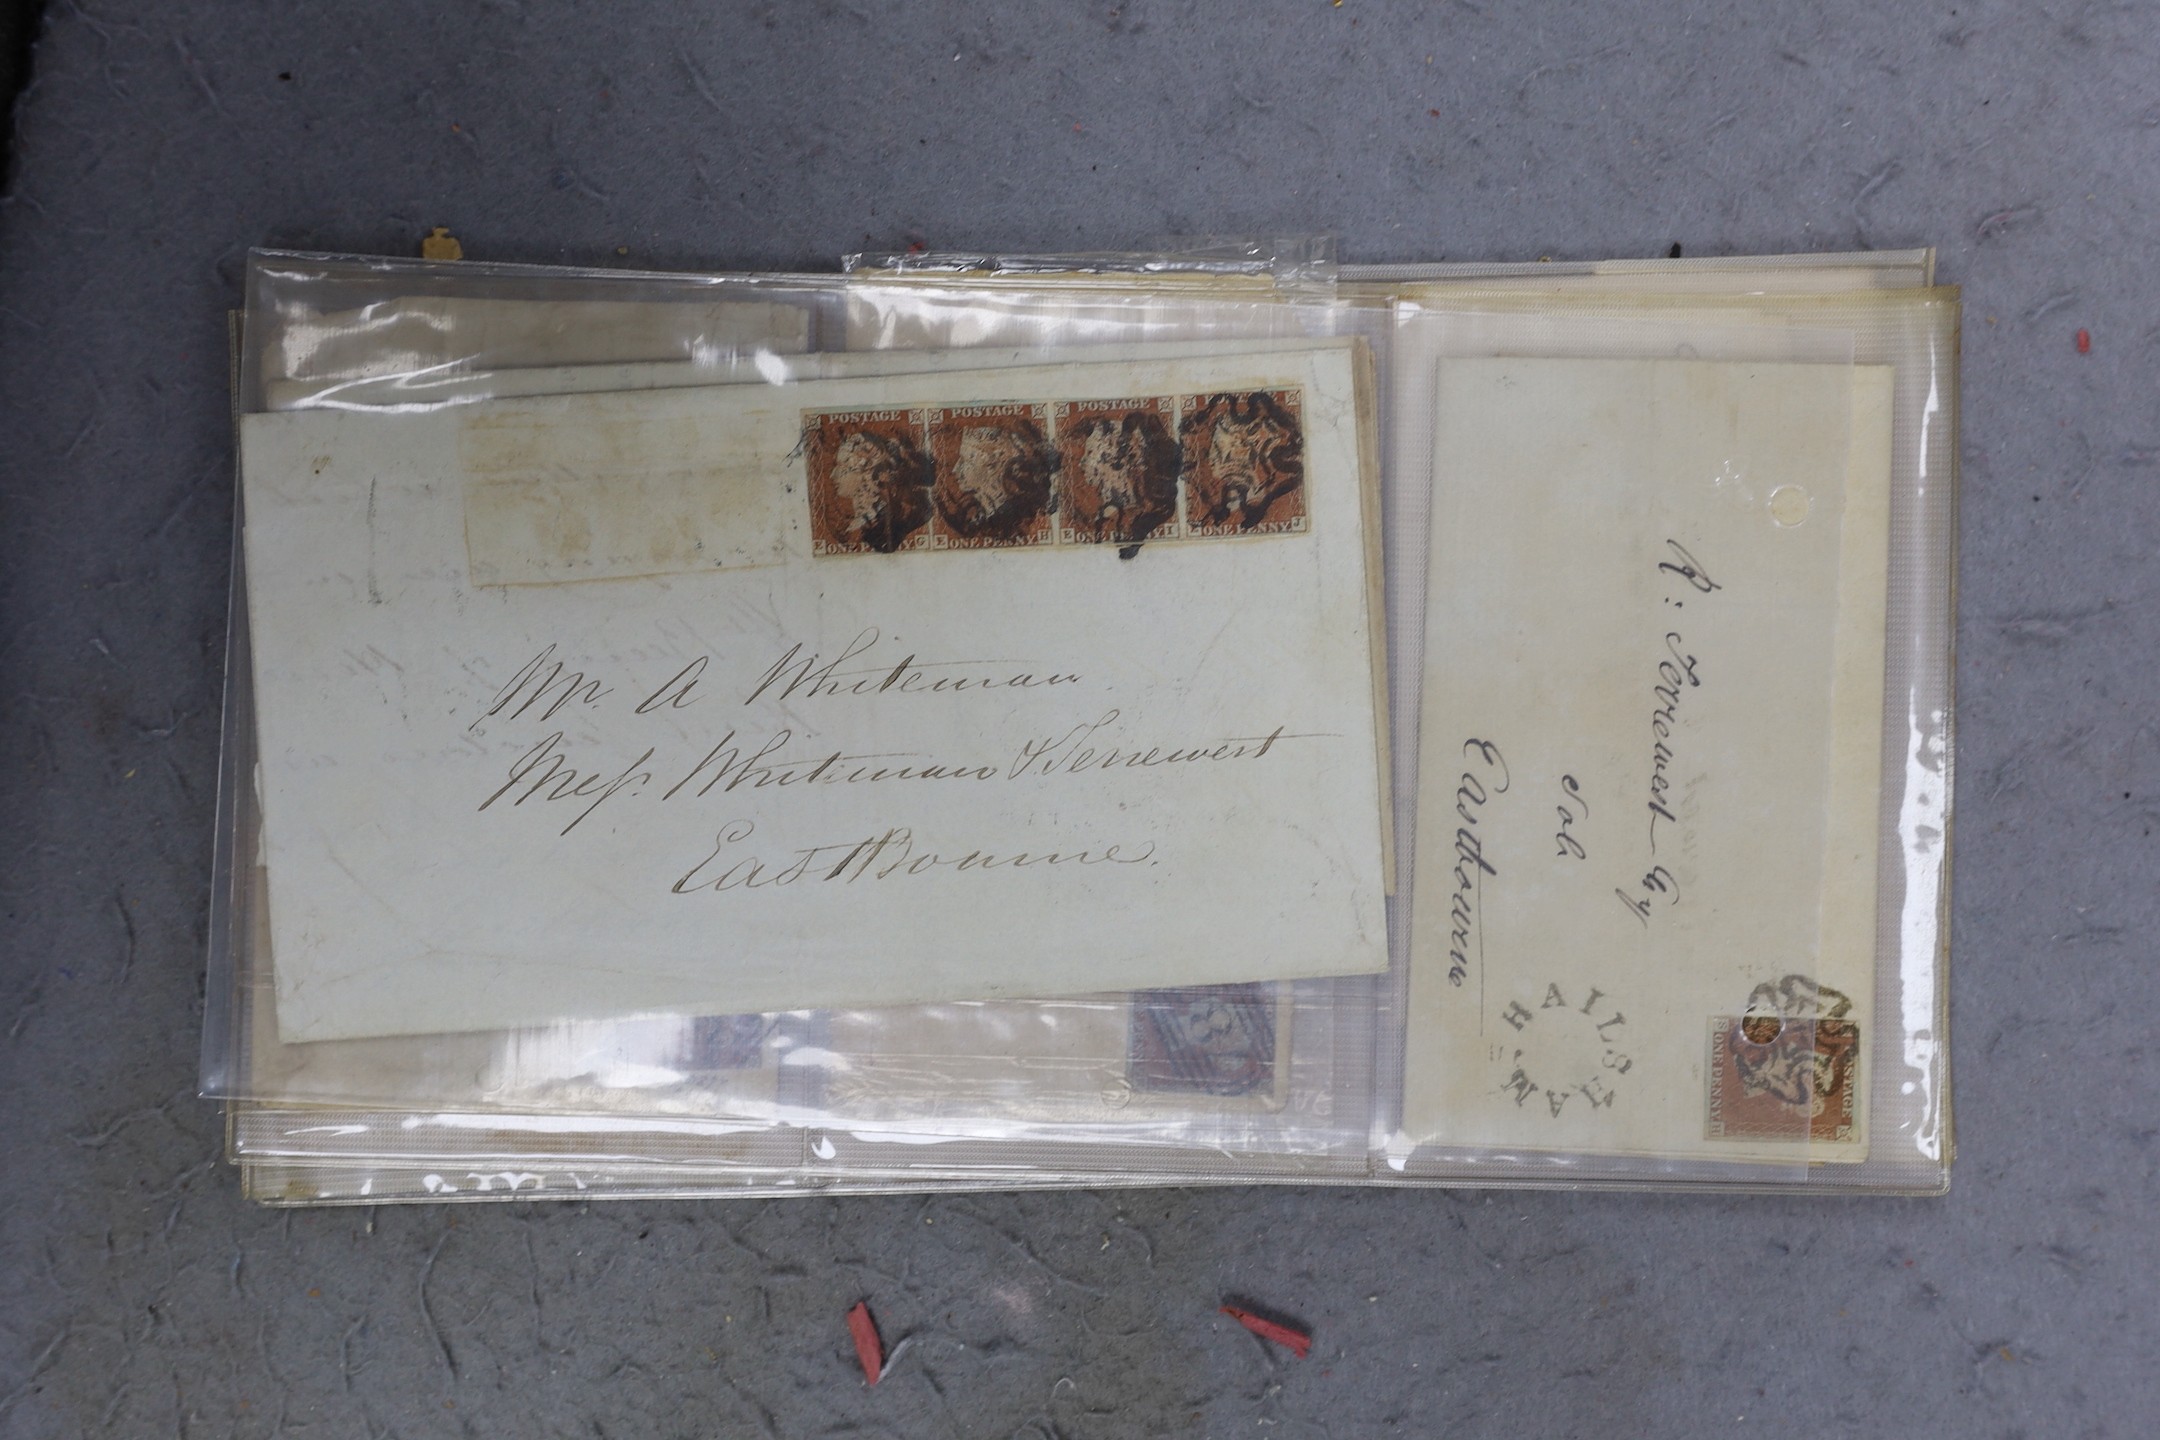 POSTAGE POSTAGE POSTAGE
E ONE PENNY G E ONE PENNY H E ONE PENNY I E ONE PENNY J
Mr. A Whiteman
Mess. Whiteman & Terrewest
EastBourne.
R: Terrewest Esq
Sol
Eastbourne
HAILSHAM
POSTAGE
S ONE PENNY H